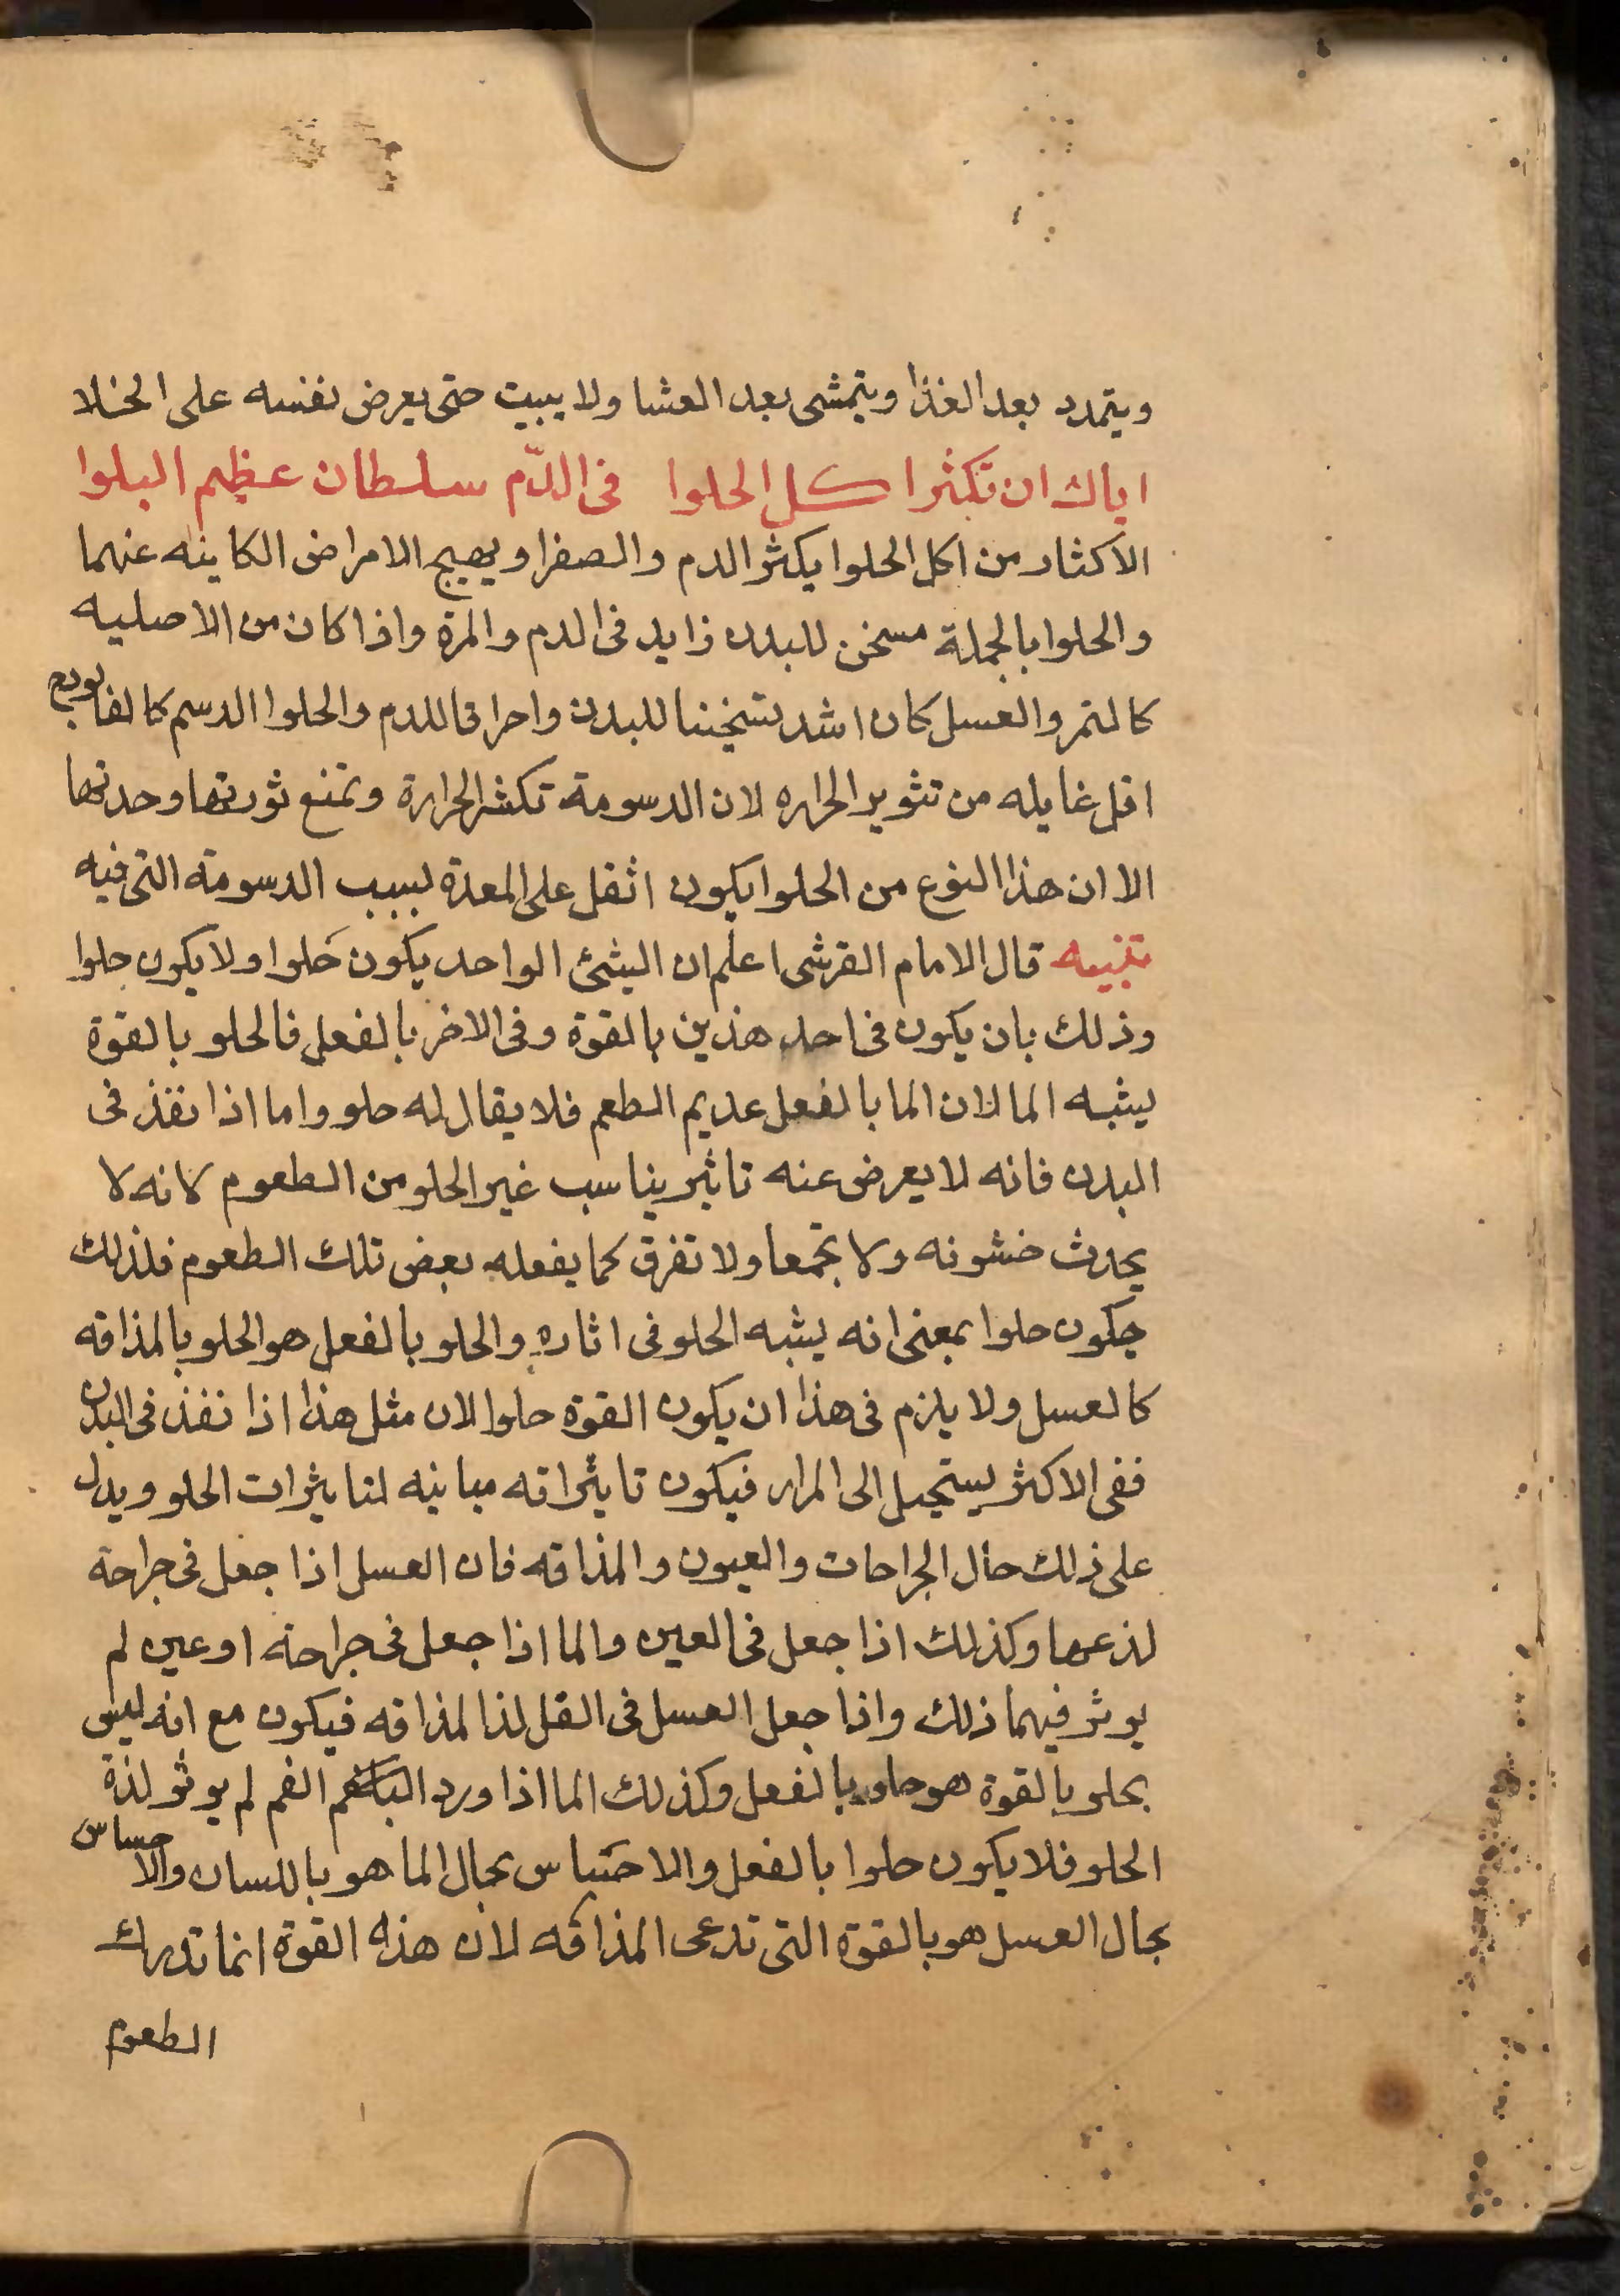 ويتمدد بعد الغذا ويتمشى بعد العشا ولا يبيت حتى يعرض نفسه على الخلا
اياك ان تكثر اكل الحلوا في الدّم سلطان عظيم البلوا
الاكثار من اكل الحلوا يكثر الدم والصفرا ويهيج الامراض الكاينه عنهما
والحلوا بالجملة مسخن للبدن زايد فى الدم والمرة واذا كان من الاصليه
كالتمر والعسل كان اشد تسخينا للبدن واحراقا للدم والحلوا الدسم كالفالودج
اقل غايله من تثوير الحراره لان الدسومة تكسر الحرارة وتمنع ثورتها وحدتها
الا ان هذا النوع من الحلوا يكون اثقل على المعدة بسبب الدسومة التى فيه
تنبيه قال الامام القرشى اعلم ان الشئ الواحد يكون حَلوا ولا يكون حلوا
وذلك بان يكون فى احد هذين بالقوة وفى الاخر بالفعل فالحلو بالقوة
يشبه الما لان الما بالفعل عديم الطعم فلا يقال له حلو واما اذا نفذ فى
البدن فانه لا يعرض عنه تاثير يناسب غير الحلو من الطعوم لانه لا
يحدث خشونه ولا تجمعا ولا تفرق كما يفعله بعض تلك الطعوم فلذلك
يكون حلوا بمعنى انه يشبه الحلو فى اثاره والحلو بالفعل هو الحلو بالمذاقه
كالعسل ولا يلزم فى هذا ان يكون القوة حلوا لان مثل هذا اذا نفذ فى البدن
ففى الاكثر يستحيل الى المرار فيكون تاثيراته مباينه لتاثيرات الحلو ويدل
على ذلك حال الجراحات والعيون والمذاقه فان العسل اذا جعل فى جراحة
لذعها وكذلك اذا جعل فى العين والما اذا جعل فى جراحة او عين لم
يوثر فيهما ذلك واذا جعل العسل فى لذ المذاقه فيكون مع انه ليس
بحلو بالقوة هو حلو بالفعل وكذلك الما اذا ورد الفم لم يوثر لذة
الحلو فلا يكون حلوا بالفعل والاحتباس بحال الما هو باللسان والاحساس
بحال العسل هو بالقوة التى تدعى المذاقه لان هذه القوة انما تدرك
الطعوم